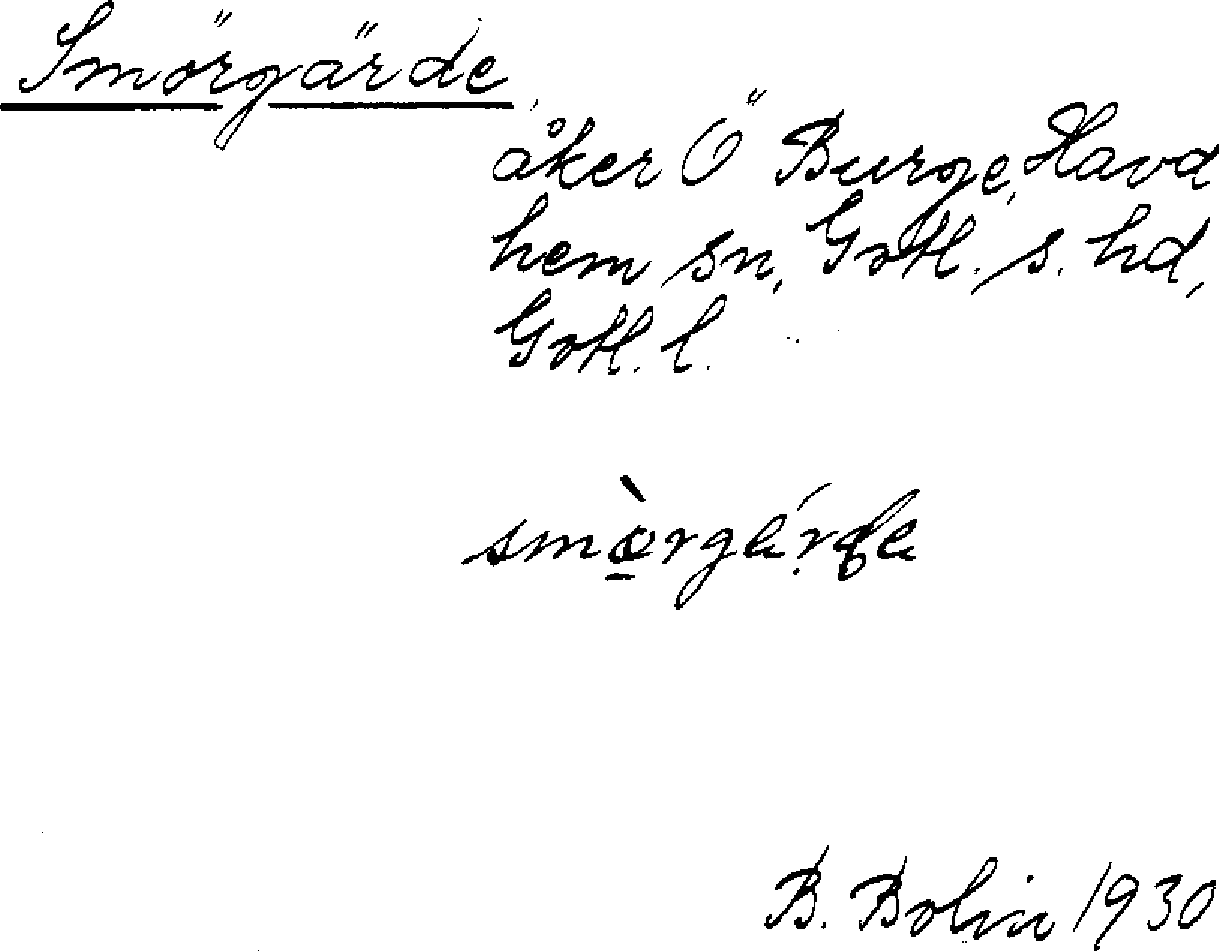 Smörgärde
åker Ö Burge, Havd
hem sn, Gotl. s. hd,
Gotl. l.
B. Bolin 1930